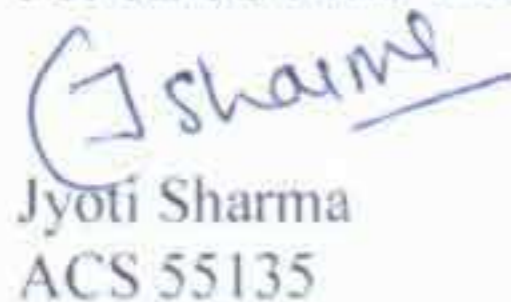 J Sharma
Jyoti Sharma
ACS 55135